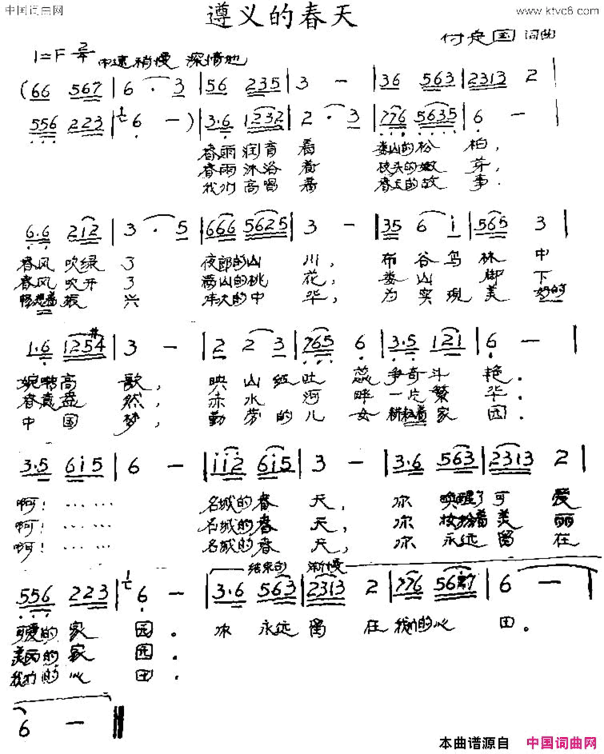 中国词曲网
www.ktvc8.com
遵义的春天
付定国 词曲
1=F 2/4 中速稍慢 深情地
(66 567 | 6· 3 | 56 235 | 3 - | 36 563 | 2313 2 |
556 223 | 6 -) | 3·6 1232 | 2·3 | 776 5635 | 6 - |
春雨润育着 娄山的松柏,
春雨沐浴着 枝头的嫩芽,
我们高唱着 春天的故事.
6·6 212 | 3· 5 | 666 5625 | 3 - | 35 6 i | 565 3 |
春风吹绿了 夜郎的山川, 布谷鸟林中
春风吹开了 满山的桃花, 娄山脚下
振兴 伟大的中华, 为实现美好的
1·6 1254 | 3 - | 2 2 3 | 765 6 | 3·5 121 | 6 - |
婉转高歌, 映山红吐蕊争奇斗艳.
春意盎然, 赤水河畔一片繁华.
中国梦, 勤劳的儿女 家园.
3·5 6i5 | 6 - | iii2 6i5 | 3 - | 3·6 563 | 2313 2 |
啊!…… 名城的春天, 你唤醒了可爱
啊!…… 名城的春天, 你 着美丽
啊!…… 名城的春天, 你永远留在
结束句 渐慢
556 223 | 6 - | 3·6 563 | 2313 2 | 776 56 | 6 - |
可爱的家园. 你永远留在我们的心田.
美丽的家园.
我们的心田.
6 - ‖
本曲谱源自 中国词曲网